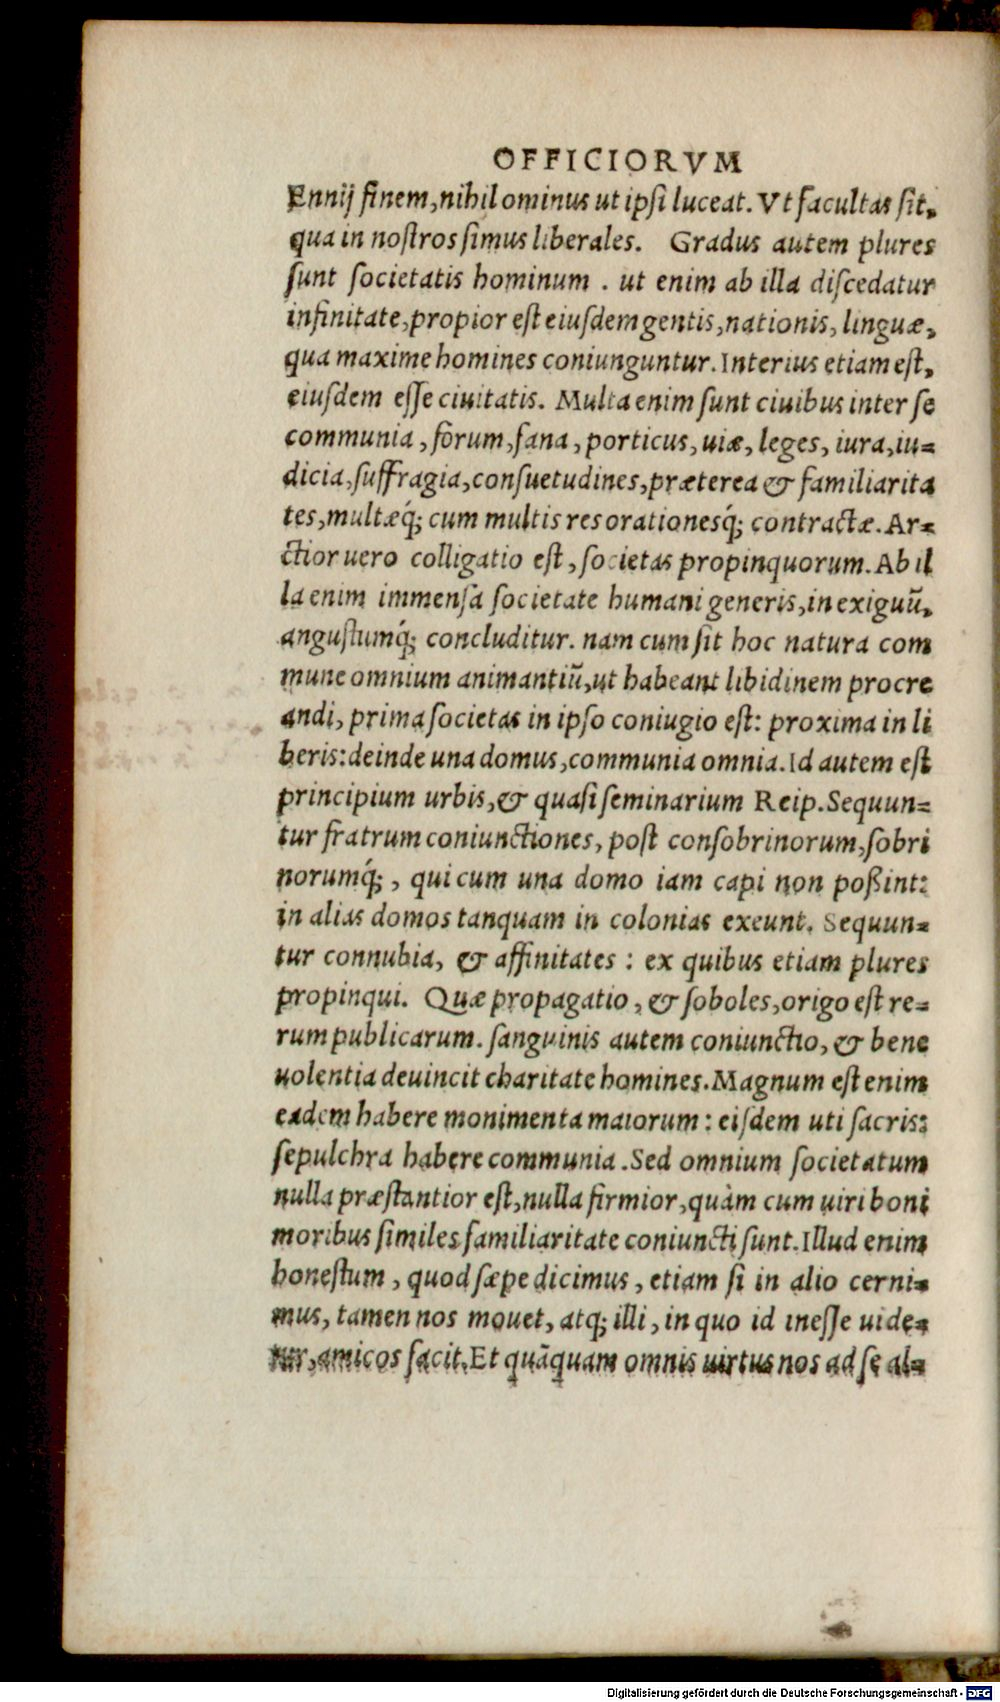 OFFICIORVM
Ennij finem, nihilominus ut ipſi luceat. Vt facultas ſit,
qua in noſtros ſimus liberales. Gradus autem plures
ſunt ſocietatis hominum . ut enim ab illa diſcedatur
infinitate, propior eſt eiuſdem gentis, nationis, linguæ,
qua maxime homines coniunguntur. Interius etiam eſt,
eiuſdem eſſe ciuitatis. Multa enim ſunt ciuibus inter ſe
communia, forum, fana, porticus, uiæ, leges, iura, iu-
dicia, ſuffragia, conſuetudines, præterea & familiarita
tes, multæq́; cum multis res orationesq́; contractæ. Ar-
ctior uero colligatio eſt, ſocietas propinquorum. Ab il
la enim immenſa ſocietate humani generis, in exiguũ,
anguſtumq́; concluditur. nam cum ſit hoc natura com
mune omnium animantiũ, ut habeant libidinem procre
andi, prima ſocietas in ipſo coniugio eſt: proxima in li
beris: deinde una domus, communia omnia. Id autem eſt
principium urbis, & quaſi ſeminarium Reip. Sequun-
tur fratrum coniunctiones, poſt conſobrinorum, ſobri
norumq́;, qui cum una domo iam capi non poßint:
in alias domos tanquam in colonias exeunt. Sequun-
tur connubia, & affinitates : ex quibus etiam plures
propinqui. Quæ propagatio, & ſoboles, origo eſt re-
rum publicarum. ſanguinis autem coniunctio, & bene
uolentia deuincit charitate homines. Magnum eſt enim
eadem habere monimenta maiorum : eiſdem uti ſacris:
ſepulchra habere communia . Sed omnium ſocietatum
nulla præſtantior eſt, nulla firmior, quàm cum uiri boni
moribus ſimiles familiaritate coniuncti ſunt. Illud enim
honeſtum, quod ſæpe dicimus, etiam ſi in alio cerni-
mus, tamen nos mouet, atq; illi, in quo id ineſſe uide-
tur, amicos facit. Et quãquam omnis uirtus nos ad ſe al-
Digitalisierung gefördert durch die Deutsche Forschungsgemeinschaft - DFG